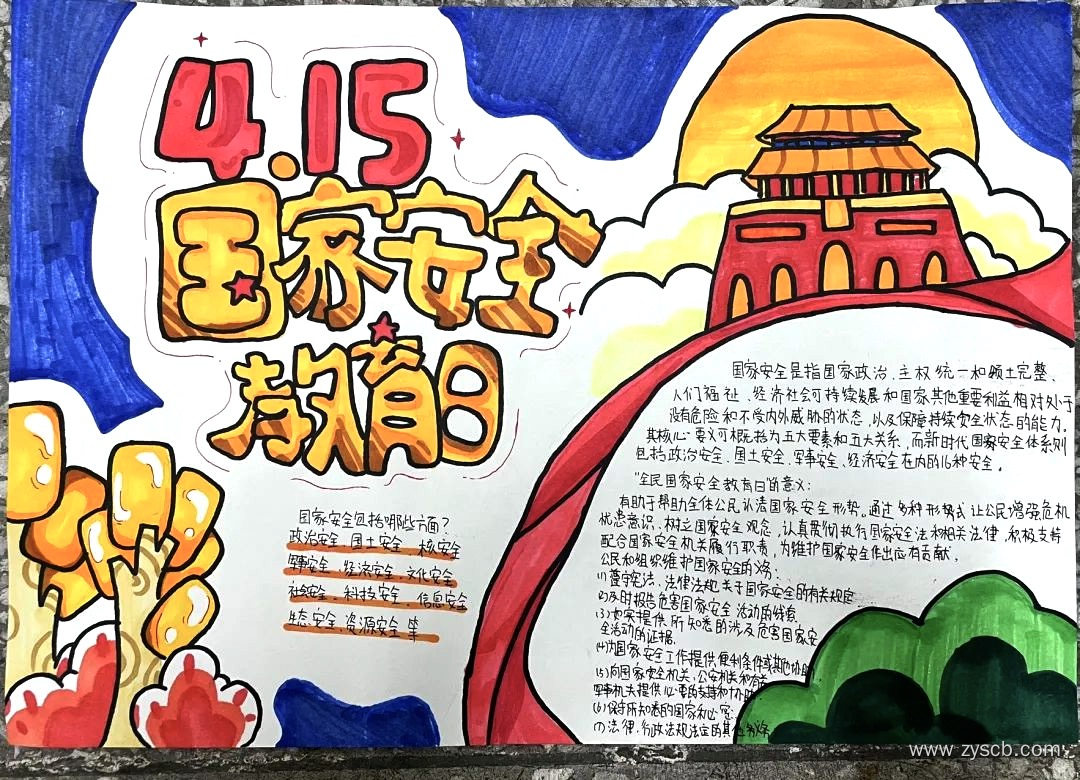 4.15
国家安全
教育日
国家安全包括哪些方面?
政治安全、国土安全、核安全
军事安全、经济安全、文化安全
社会安全、科技安全、信息安全
生态安全、资源安全、等
国家安全是指国家政治、主权、统一和领土完整、
人们福祉、经济社会可持续发展和国家其他重要利益相对处于
没有危险和不受内外威胁的状态,以及保障持续安全状态的能力。
其核心要义可概括为五大要素和五大关系,而新时代国家安全体系则
包括政治安全、国土安全、军事安全、经济安全在内的16种安全。
"全民国家安全教育日的意义:
有助于帮助全体公民认清国家安全形势。通过多种形势式让公民增强危机
忧患意识,树立国家安全观念,认真贯彻执行国家安全法和相关法律,积极支持
配合国家安全机关履行职责,为维护国家安全作出应有贡献。
公民和组织维护国家安全的义务:
(1)遵守宪法、法律法规关于国家安全的有关规定
(2)及时报告危害国家安全活动的线索
(3)如实提供所知悉的涉及危害国家安
全活动的证据.
(4)为国家安全工作提供便利条件或其他协助
(5)向国家安全机关、公安机关和有关
军事机关提供必要的支持和协助
(6)保守所知悉的国家秘密
(7)法律、行政法规规定的其他义务
www.zyscb.com